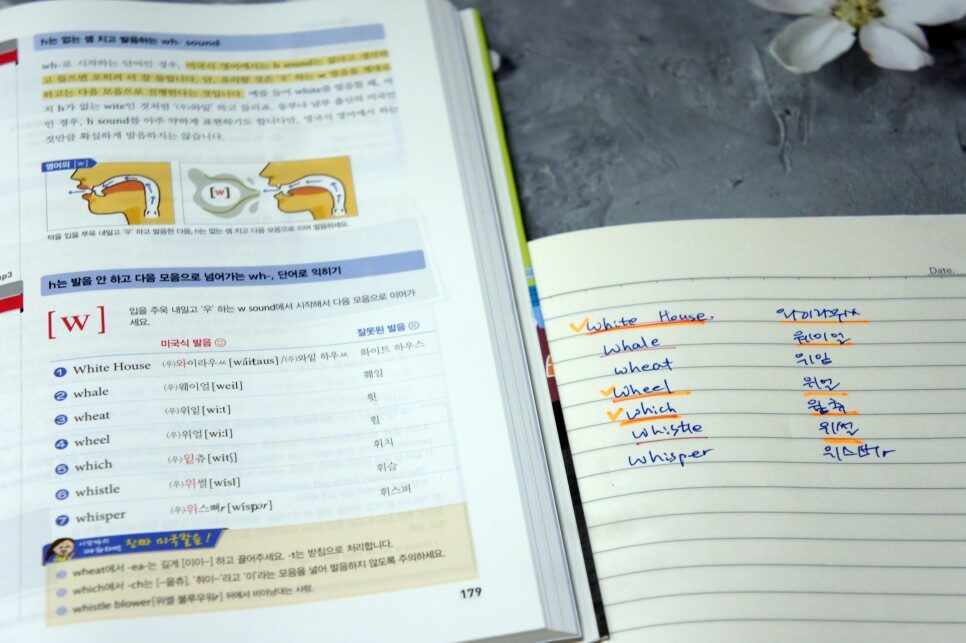 h는 없는 셈 치고 발음하는 wh- sound
wh-로 시작하는 단어인 경우, 미국식 영어에서는 h sound는 없다고 생각하
고 들으면 오히려 더 잘 들립니다. 단, 유의할 것은 '우' 하는 w 발음을 제대로
하고는 다음 모음으로 진행한다는 것입니다. 예를 들어 white를 발음할 때, 마
치 h가 없는 wite인 것처럼 '(우)와일' 하고 들리죠. 동부나 남부 출신의 미국인
인 경우, h sound를 아주 약하게 표현하기도 합니다만, 영국식 영어에서 하는
것만큼 확실하게 발음하지는 않습니다.
영어의 [w]
[w]
턱을 입을 쭈욱 내밀고 '우' 하고 발음한 다음, h는 없는 셈 치고 다음 모음으로 이어 발음하세요.
mp3
h는 발음 안 하고 다음 모음으로 넘어가는 wh-, 단어로 익히기
[w]
입을 주욱 내밀고 '우' 하는 w sound에서 시작해서 다음 모음으로 이어가
세요.
미국식 발음 잘못된 발음
1 White House (우)와이라우ㅆ [wáitaus] /(우)와일 하우ㅆ 화이트 하우스
2 whale (우)웨이얼 [weil] 훼일
3 wheat (우)위일 [wi:t] 휫
4 wheel (우)위얼 [wi:l] 휠
5 which (우)윝츄 [witʃ] 휘치
6 whistle (우)위썰 [wísl] 휘슬
7 whisper (우)위스뻐r [wíspər] 휘스퍼
진짜 미국발음!
wheat에서 -ea-는 길게 [이이-] 하고 끌어주세요. -t는 받침으로 처리합니다.
which에서 -ch는 [-읕츄], '취이-'라고 '이'라는 모음을 넣어 발음하지 않도록 주의하세요.
whistle blower[위썰 블루우워r] 뒤에서 비아냥대는 사람.
179
Date.
White House. 와이라우ㅆ
whale 웨이얼
wheat 위일
wheel 위얼
which 윝츄
whistle 위썰
whisper 위스뻐r